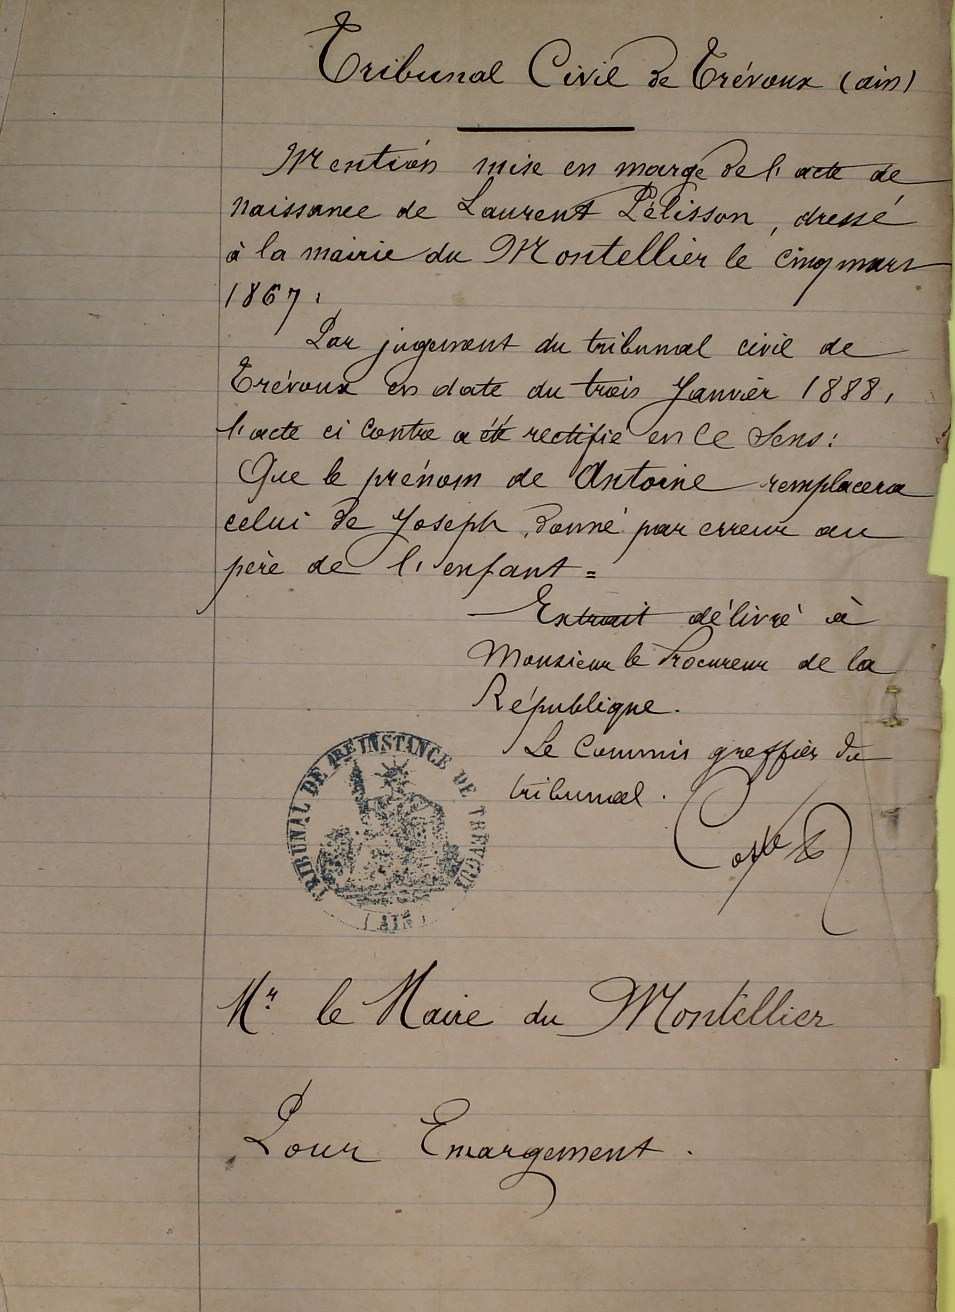 Tribunal Civil de Trévoux (ain)
Mention mise en marge de l'acte de
naissance de Laurent Pélisson, dressé
à la mairie du Montellier le cinq mars
1867.
Par jugement du tribunal civil de
Trévoux en date du trois Janvier 1888,
l'acte ci contre a été rectifié en ce sens:
Que le prénom de Antoine remplacera
celui de Joseph, donné par erreur au
père de l'enfant =
Extrait délivré à
Monsieur le Procureur de la
République.
Le Commis greffier du
tribunal.
TRIBUNAL DE 1RE INSTANCE DE TREVOUX
(AIN)
Mr le Maire du Montellier
Pour Emargement.